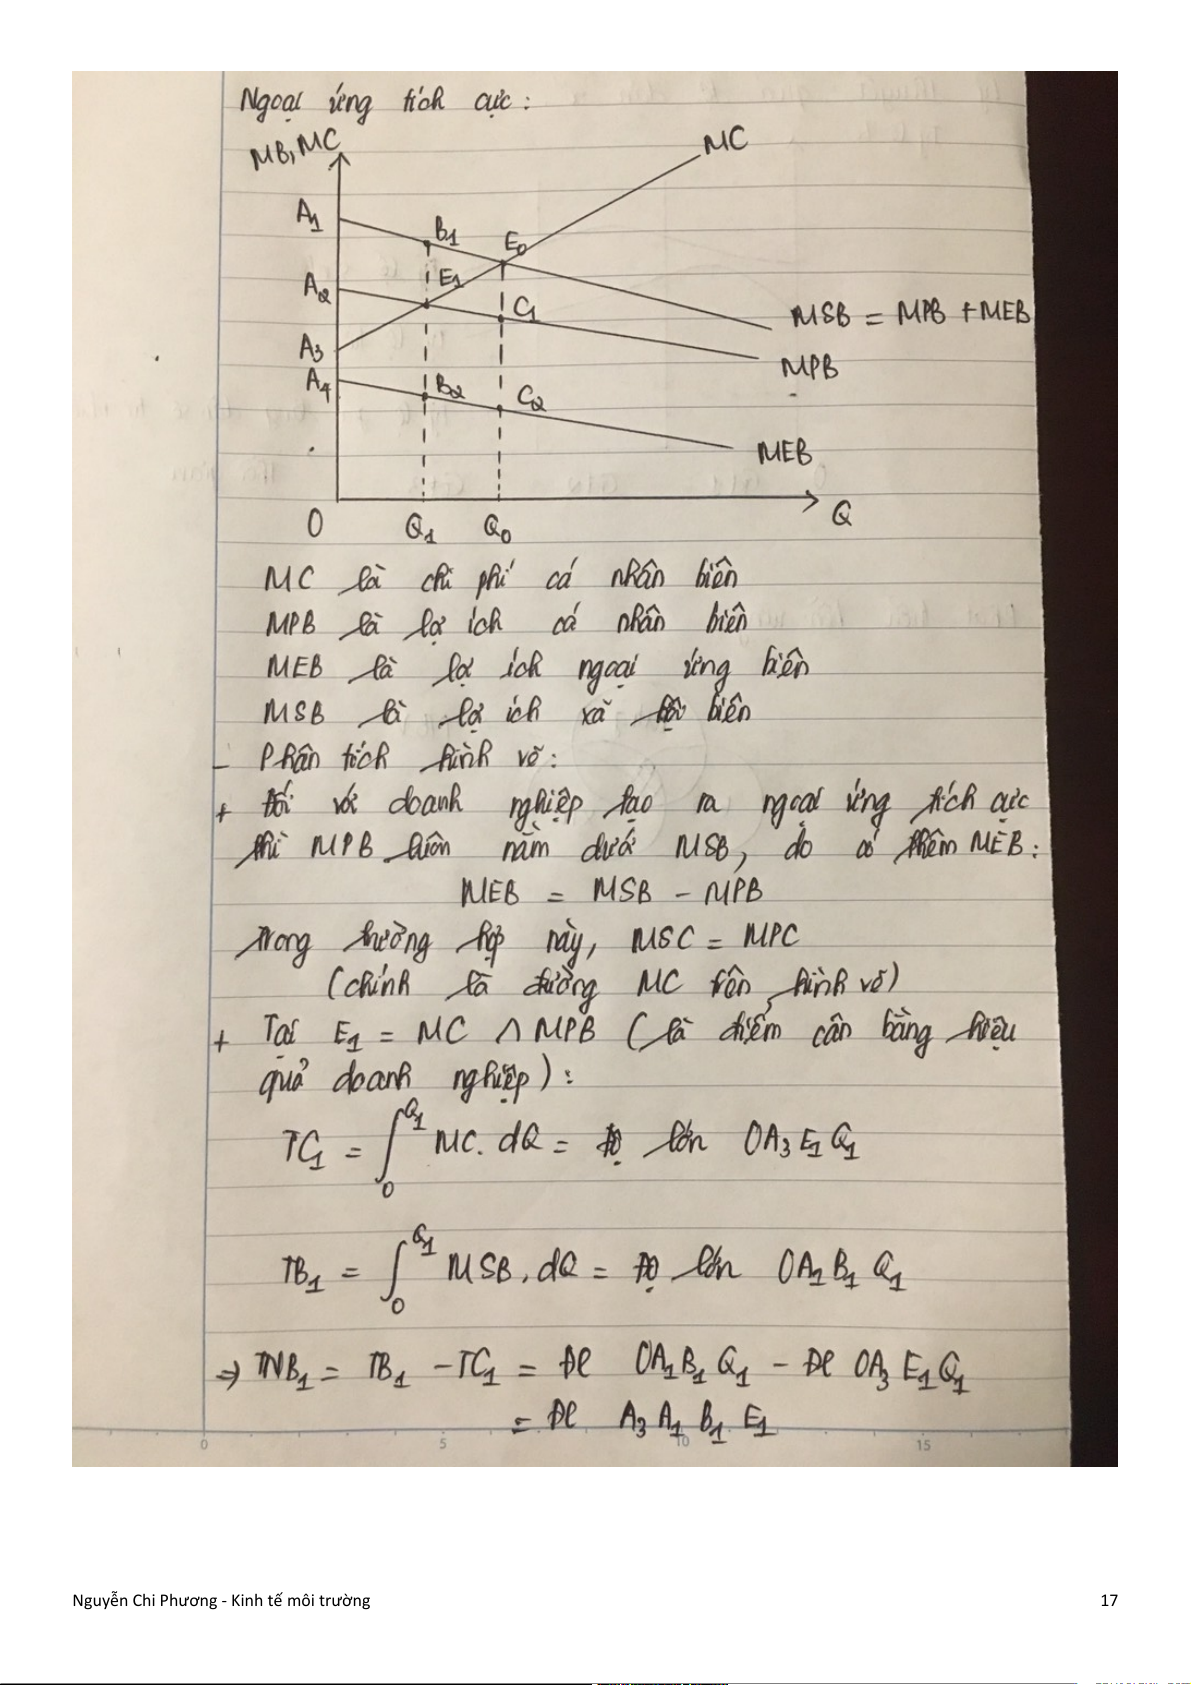 Ngoại ứng tích cực:
MB, MC
MC
A1
B1
E0
A2
E1
C1
MSB = MPB + MEB
A3
MPB
A4
B2
C2
MEB
O
Q1
Q0
Q
MC là chi phí cá nhân biên
MPB là lợi ích cá nhân biên
MEB là lợi ích ngoại ứng biên
MSB là lợi ích xã hội biên
- Phân tích hình vẽ:
+ Đối với doanh nghiệp tạo ra ngoại ứng tích cực
thì MPB luôn nằm dưới MSB, do có thêm MEB:
MEB = MSB - MPB
Trong trường hợp này, MSC = MPC
(chính là đường MC trên hình vẽ)
+ Tại E1 = MC ∧ MPB (là điểm cân bằng hiệu
quả doanh nghiệp):
TC1 = ∫0Q1 MC. dQ = Độ lớn OA3E1Q1
TB1 = ∫0Q1 MSB. dQ = Độ lớn OA1B1Q1
=> TNB1 = TB1 - TC1 = Đl OA1B1Q1 - Đl OA3E1Q1
= Đl A3A1B1E1
0 5 10 15
Nguyễn Chi Phương - Kinh tế môi trường 17